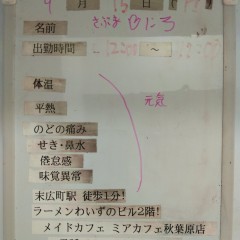 9月15日
名前 さぶま ひにろ
出勤時間 ~
体温
平熱
元気
のどの痛み
せき・鼻水
倦怠感
味覚異常
末広町駅 徒歩1分!
ラーメンわいずのビル2階!
メイドカフェ ミアカフェ秋葉原店